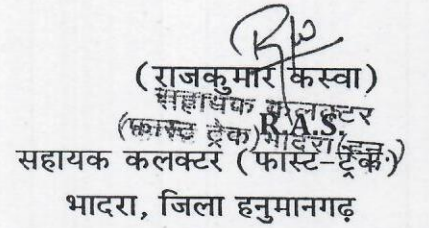 (राजकुमार कस्वा)
सहायक कलक्टर
R.A.S.
(फास्ट ट्रेक) भादरा (हनु.)
सहायक कलक्टर (फास्ट-ट्रेक)
भादरा, जिला हनुमानगढ़